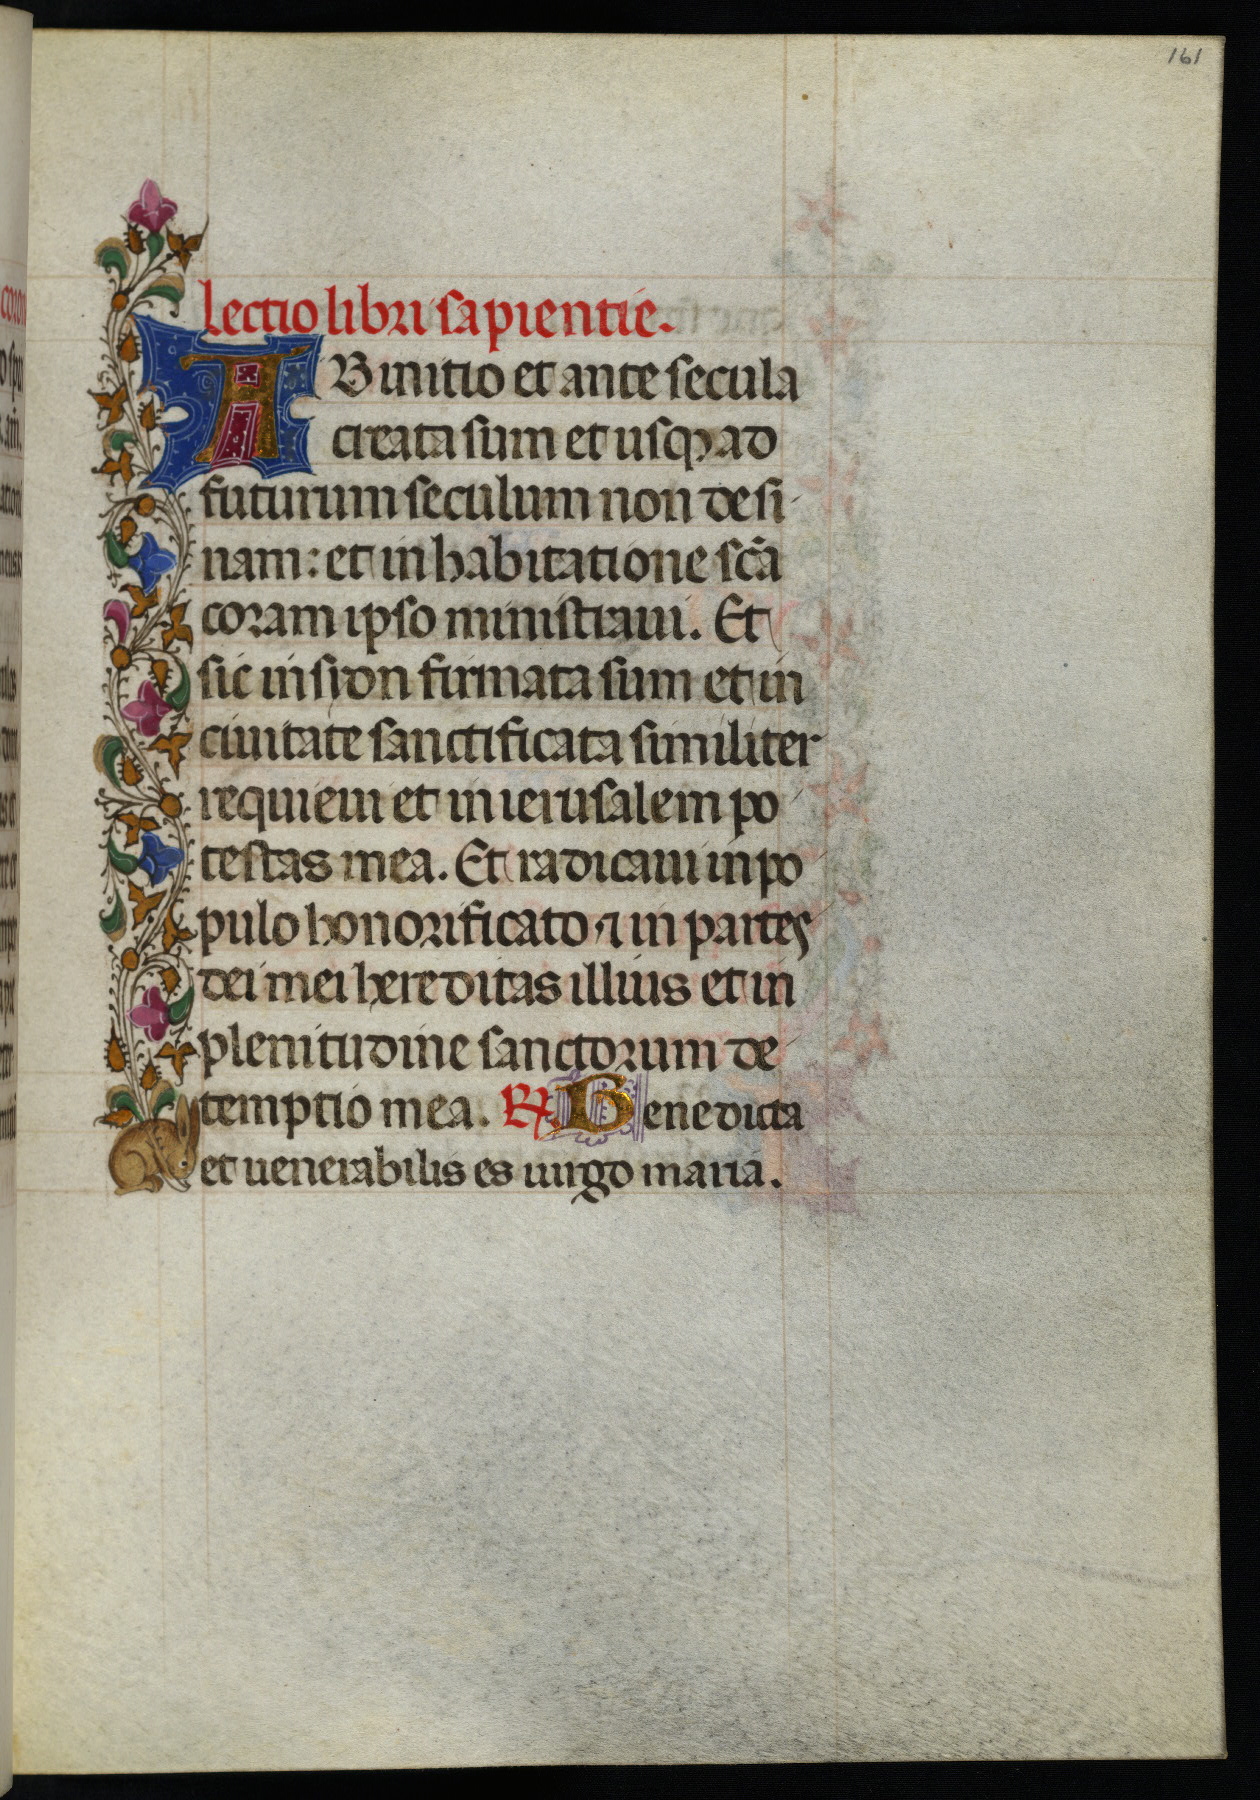 161
lectio libri sapientie.
AB initio et ante secula
creata sum et usqꝫ ad
futurum seculum non desi
nam: et in habitatione scã
coram ipso ministraui. Et
sic in syon firmata sum et in
ciuitate sanctificata similiter
requieui et in ierusalem po
testas mea. Et radicaui in po
pulo honorificato ⁊ in partes
dei mei hereditas illius et in
plenitudine sanctorum de
temptio mea. ℟ Benedicta
et uenerabilis es uirgo maria.